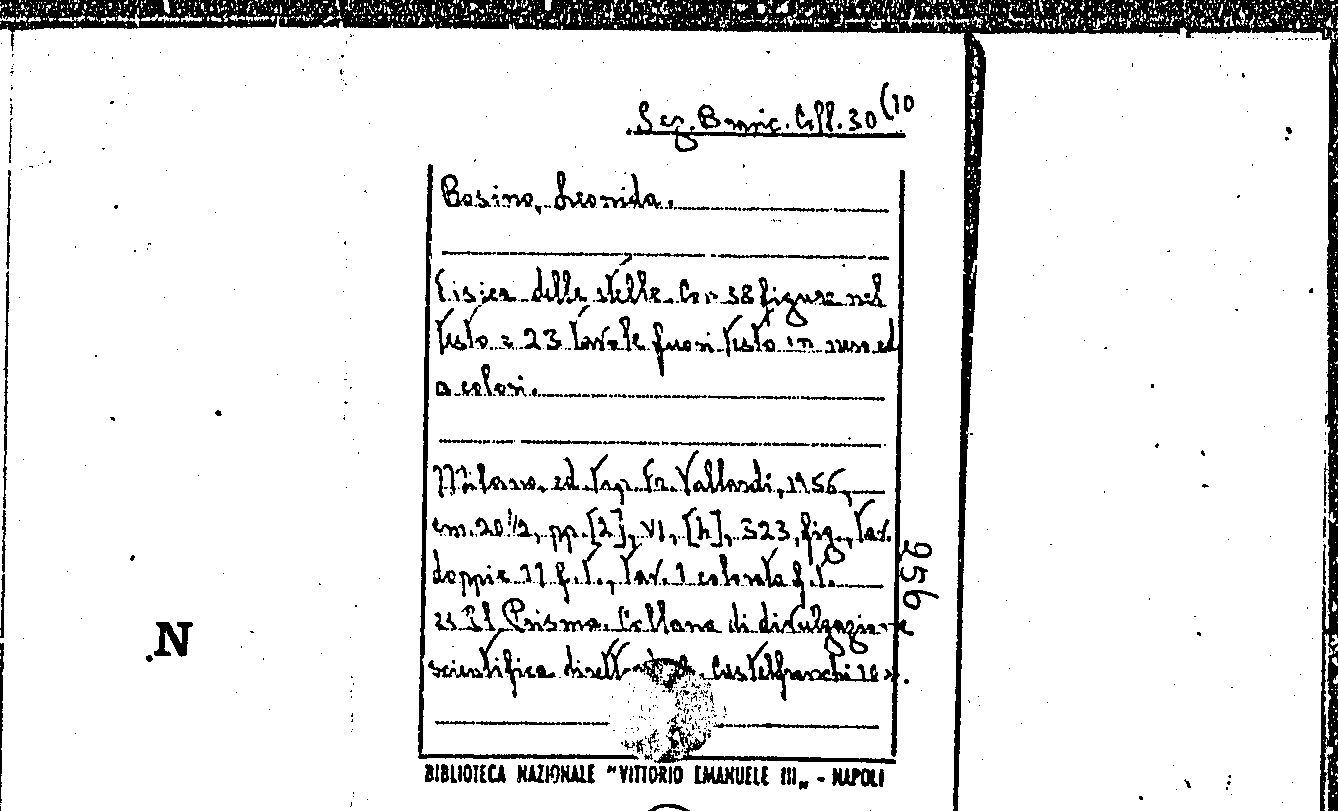 Sez. Branc. Coll. 30 (10
Rosino, Leonida.
Fisica delle stelle. Con 38 figure nel
testo e 23 tavole fuori testo in nero ed
a colori.
Milano, ed. tip. Fr. Vallardi, 1956,
cm. 20 1/2, pp. [2], VI, [4], 323, fig., tav.
doppie 11 f. t., tav. 1 colorata f. t.
«Il Prisma. Collana di divulgazione
scientifica diretta Castelfranchi
956
N
BIBLIOTECA NAZIONALE "VITTORIO EMANUELE III„ - NAPOLI